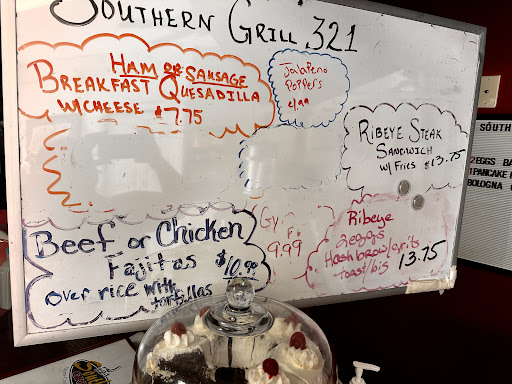 Southern Grill 321
Ham or Sausage
Breakfast Quesadilla
w/cheese $7.75
Jalapeno
Poppers
4.99
Ribeye Steak
Sandwich
w/ Fries $13.75
Beef or Chicken
Fajitas $10.99
over rice with
tortillas
Gy
F
9.99
Ribeye
2 eggs
Hashbrown/grits
toast/bis 13.75
SOUTH
2EGGS BA
1PANCAKE
BOLOGNA